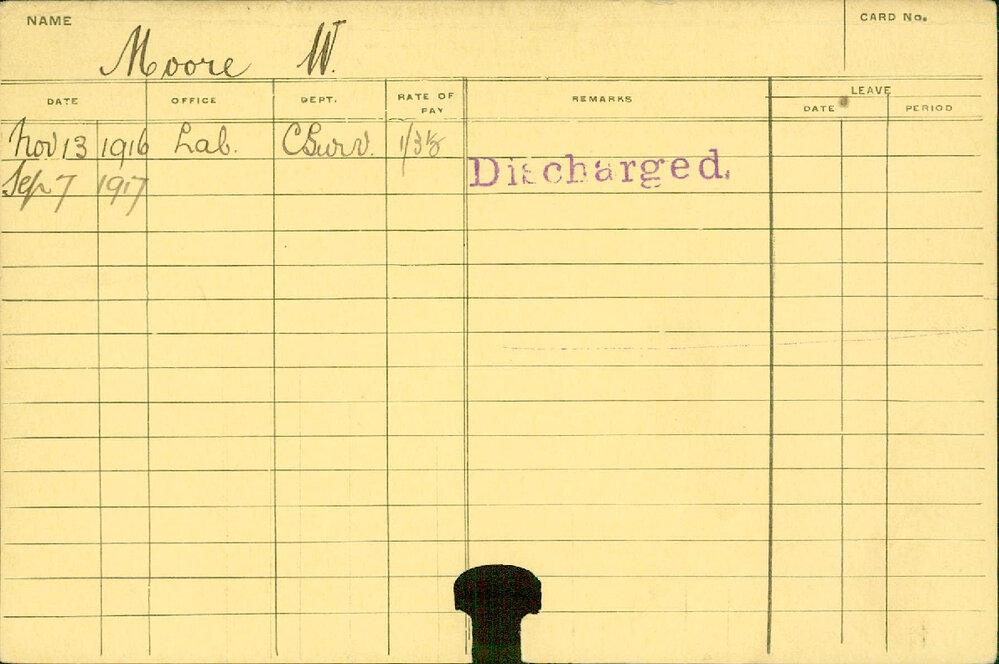 NAME
CARD No.
Moore W.
DATE OFFICE DEPT. RATE OF PAY REMARKS LEAVE
DATE PERIOD
Nov 13 1916 Lab. CSurv. 1/3⅛
Discharged.
Sep 7 1917